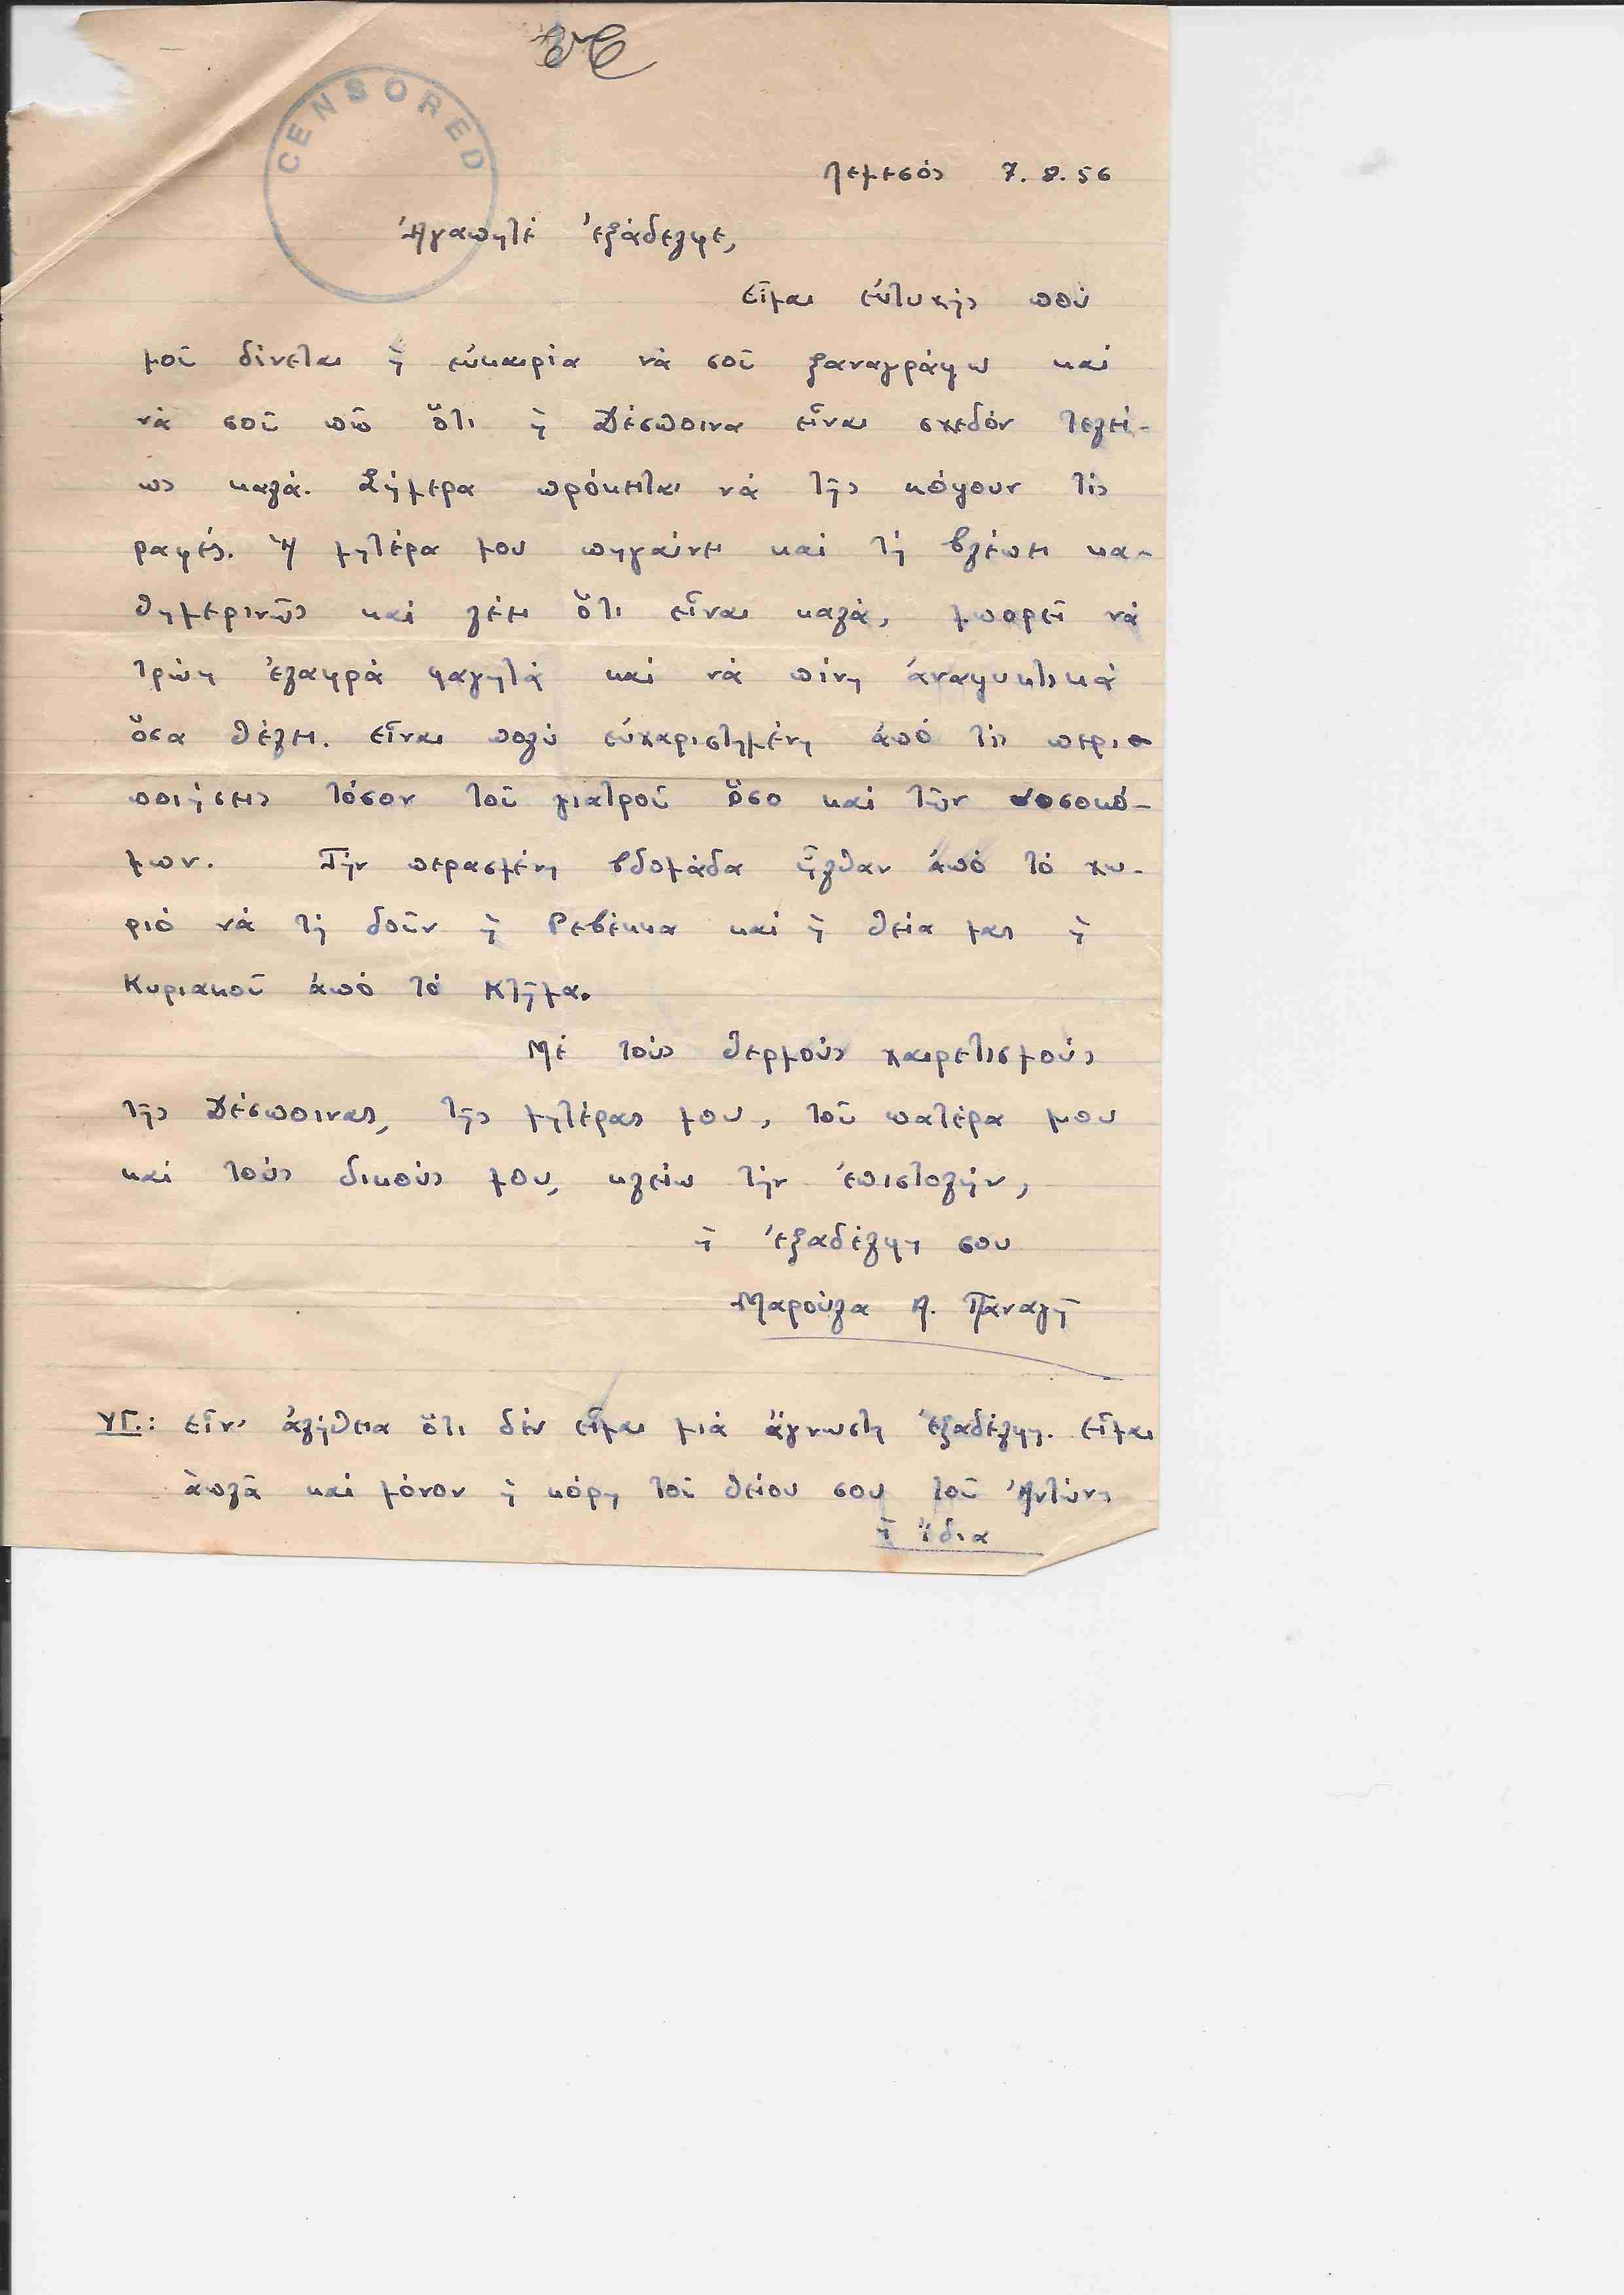 CENSORED
Λεμεσός 7. 8. 56
Ἀγαπητέ ἐξάδελφε,
εἶμαι εὐτυχής πού
μοῦ δίνεται ἡ εὐκαιρία νά σοῦ ξαναγράψω καί
νά σοῦ πῶ ὅτι ἡ Δέσποινα εἶναι σχεδόν τελεί-
ως καλά. Σήμερα πρόκειται νά τῆς κόψουν τίς
ραφές. Ἡ μητέρα μου πηγαίνει καί τή βλέπει κα-
θημερινῶς καί λέει ὅτι εἶναι καλά, μπορεῖ νά
τρώη ἐλαφρά φαγητά καί νά πίνη ἀναψυκτικά
ὅσα θέλει. εἶναι πολύ εὐχαριστημένη ἀπό τίς περι-
ποιήσεις τόσον τοῦ γιατροῦ ὅσο καί τῶν νοσοκό-
μων. Τήν περασμένη βδομάδα ἦλθαν ἀπό τό χω-
ριό νά τή δοῦν ἡ Ρεβέκκα καί ἡ θεία μας ἡ
Κυριακοῦ ἀπό τό Κτῆμα.
Μέ τούς θερμούς χαιρετισμούς
τῆς Δέσποινας, τῆς μητέρας μου, τοῦ πατέρα μου
καί τούς δικούς μου, κλείω τήν ἐπιστολήν,
ἡ ἐξαδέλφη σου
Μαρούλα Α. Παναγῆ
ΥΓ.: εἶν' ἀλήθεια ὅτι δέν εἶμαι μιά ἄγνωστη ἐξαδέλφη. εἶμαι
ἁπλᾶ καί μόνον ἡ κόρη τοῦ θείου σου τοῦ Ἀντώνη
ἡ ἴδια